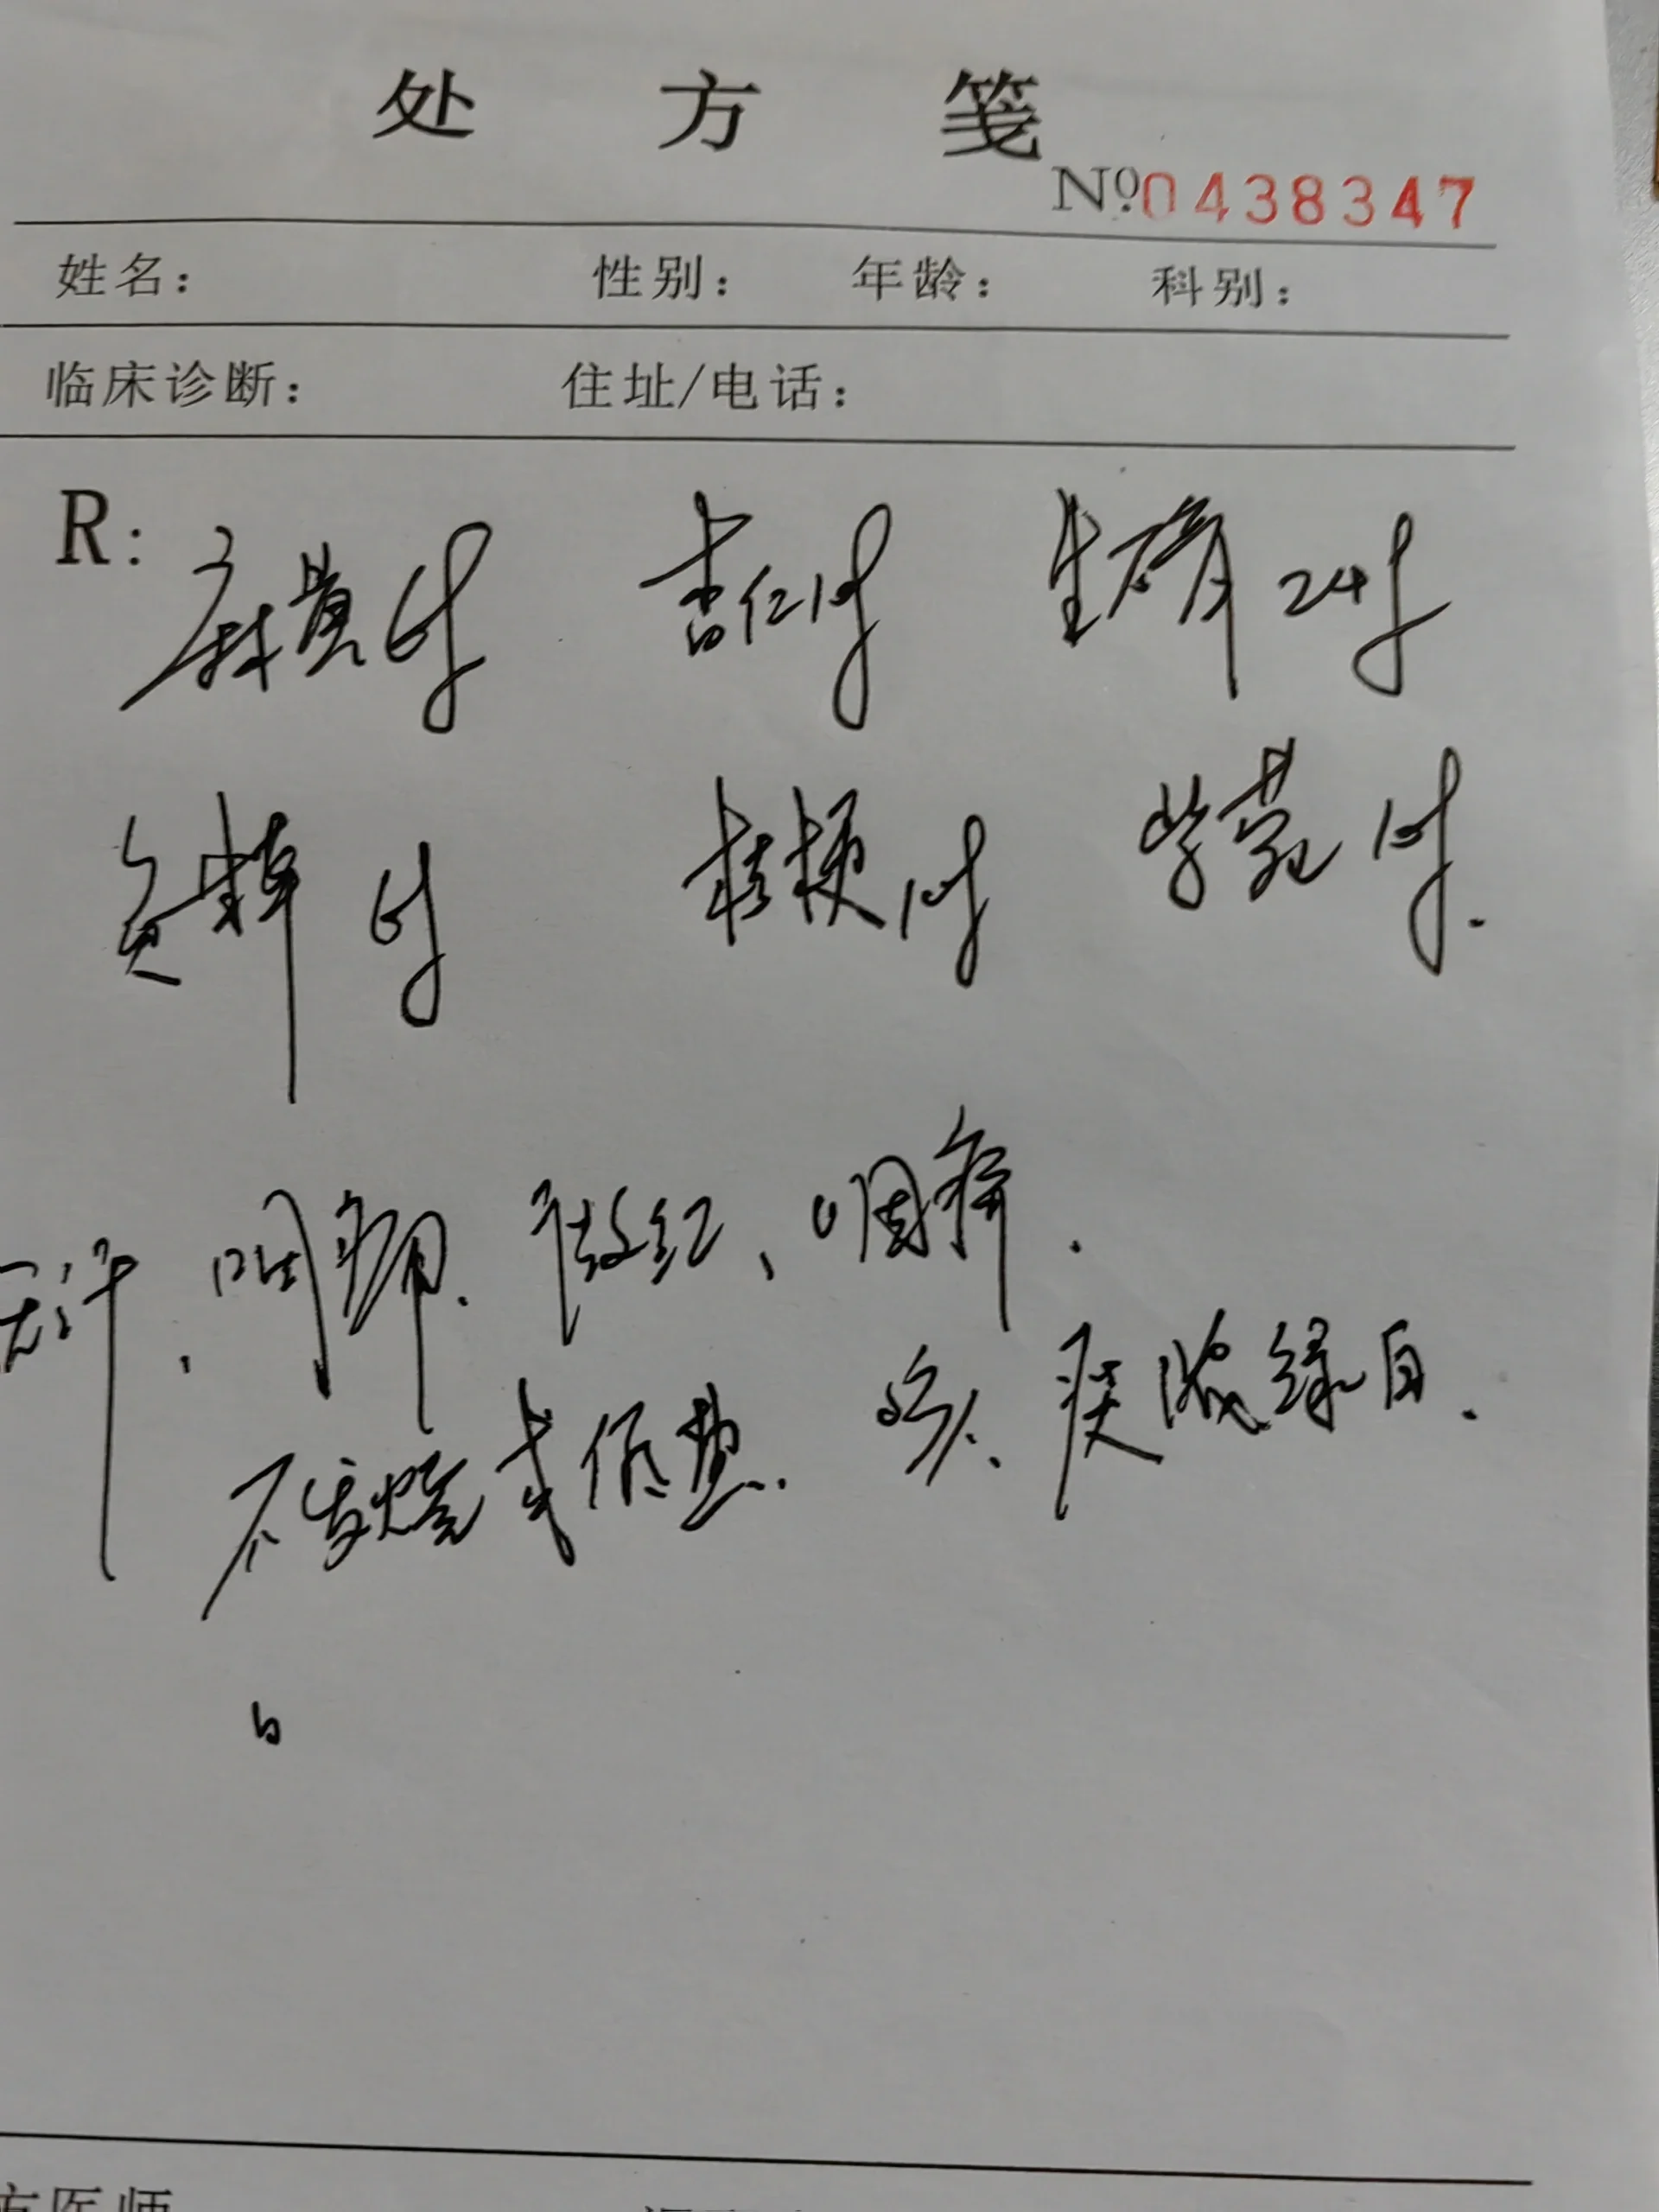 处方笺
№0438347
姓名： 性别： 年龄： 科别：
临床诊断： 住址/电话：
R: 麻黄6g 杏仁10g 生石膏24g
6g 桔梗10g 紫菀10g.
无汗、 微红、咽痛.
不发烧或低热. 咳、痰脓绿白.
方医师